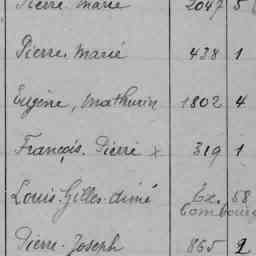 Pierre Marie 2047 5
Pierre, Marie 438 1
Eugène, Mathurin 1802 4
François, Pierre x 319 1
Louis-Gilles-Aimé Ex. 58
Combourg
Pierre-Joseph 865 2